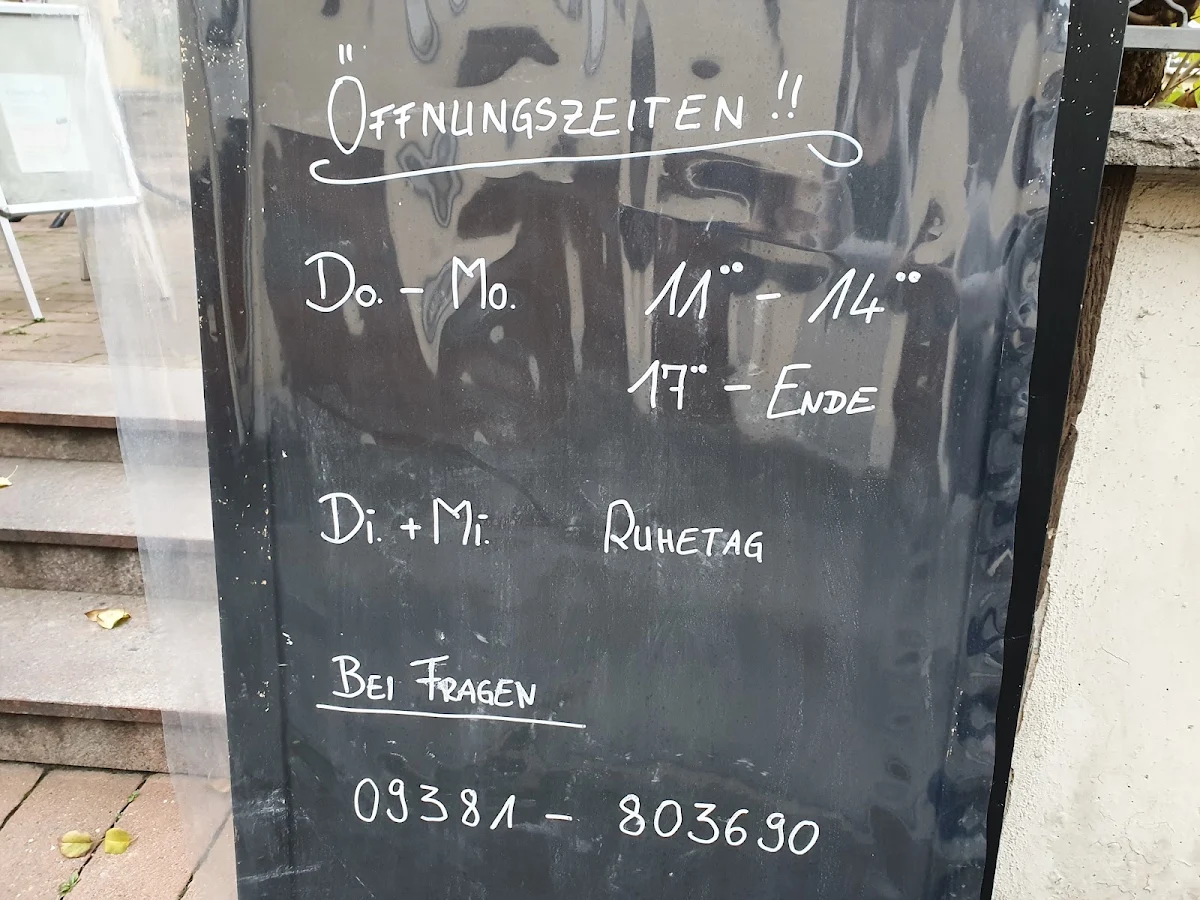 ÖFFNUNGSZEITEN !!
Do. - Mo. 11°° - 14°°
17°° - ENDE
Di. + Mi. RUHETAG
BEI FRAGEN
09381 - 803690